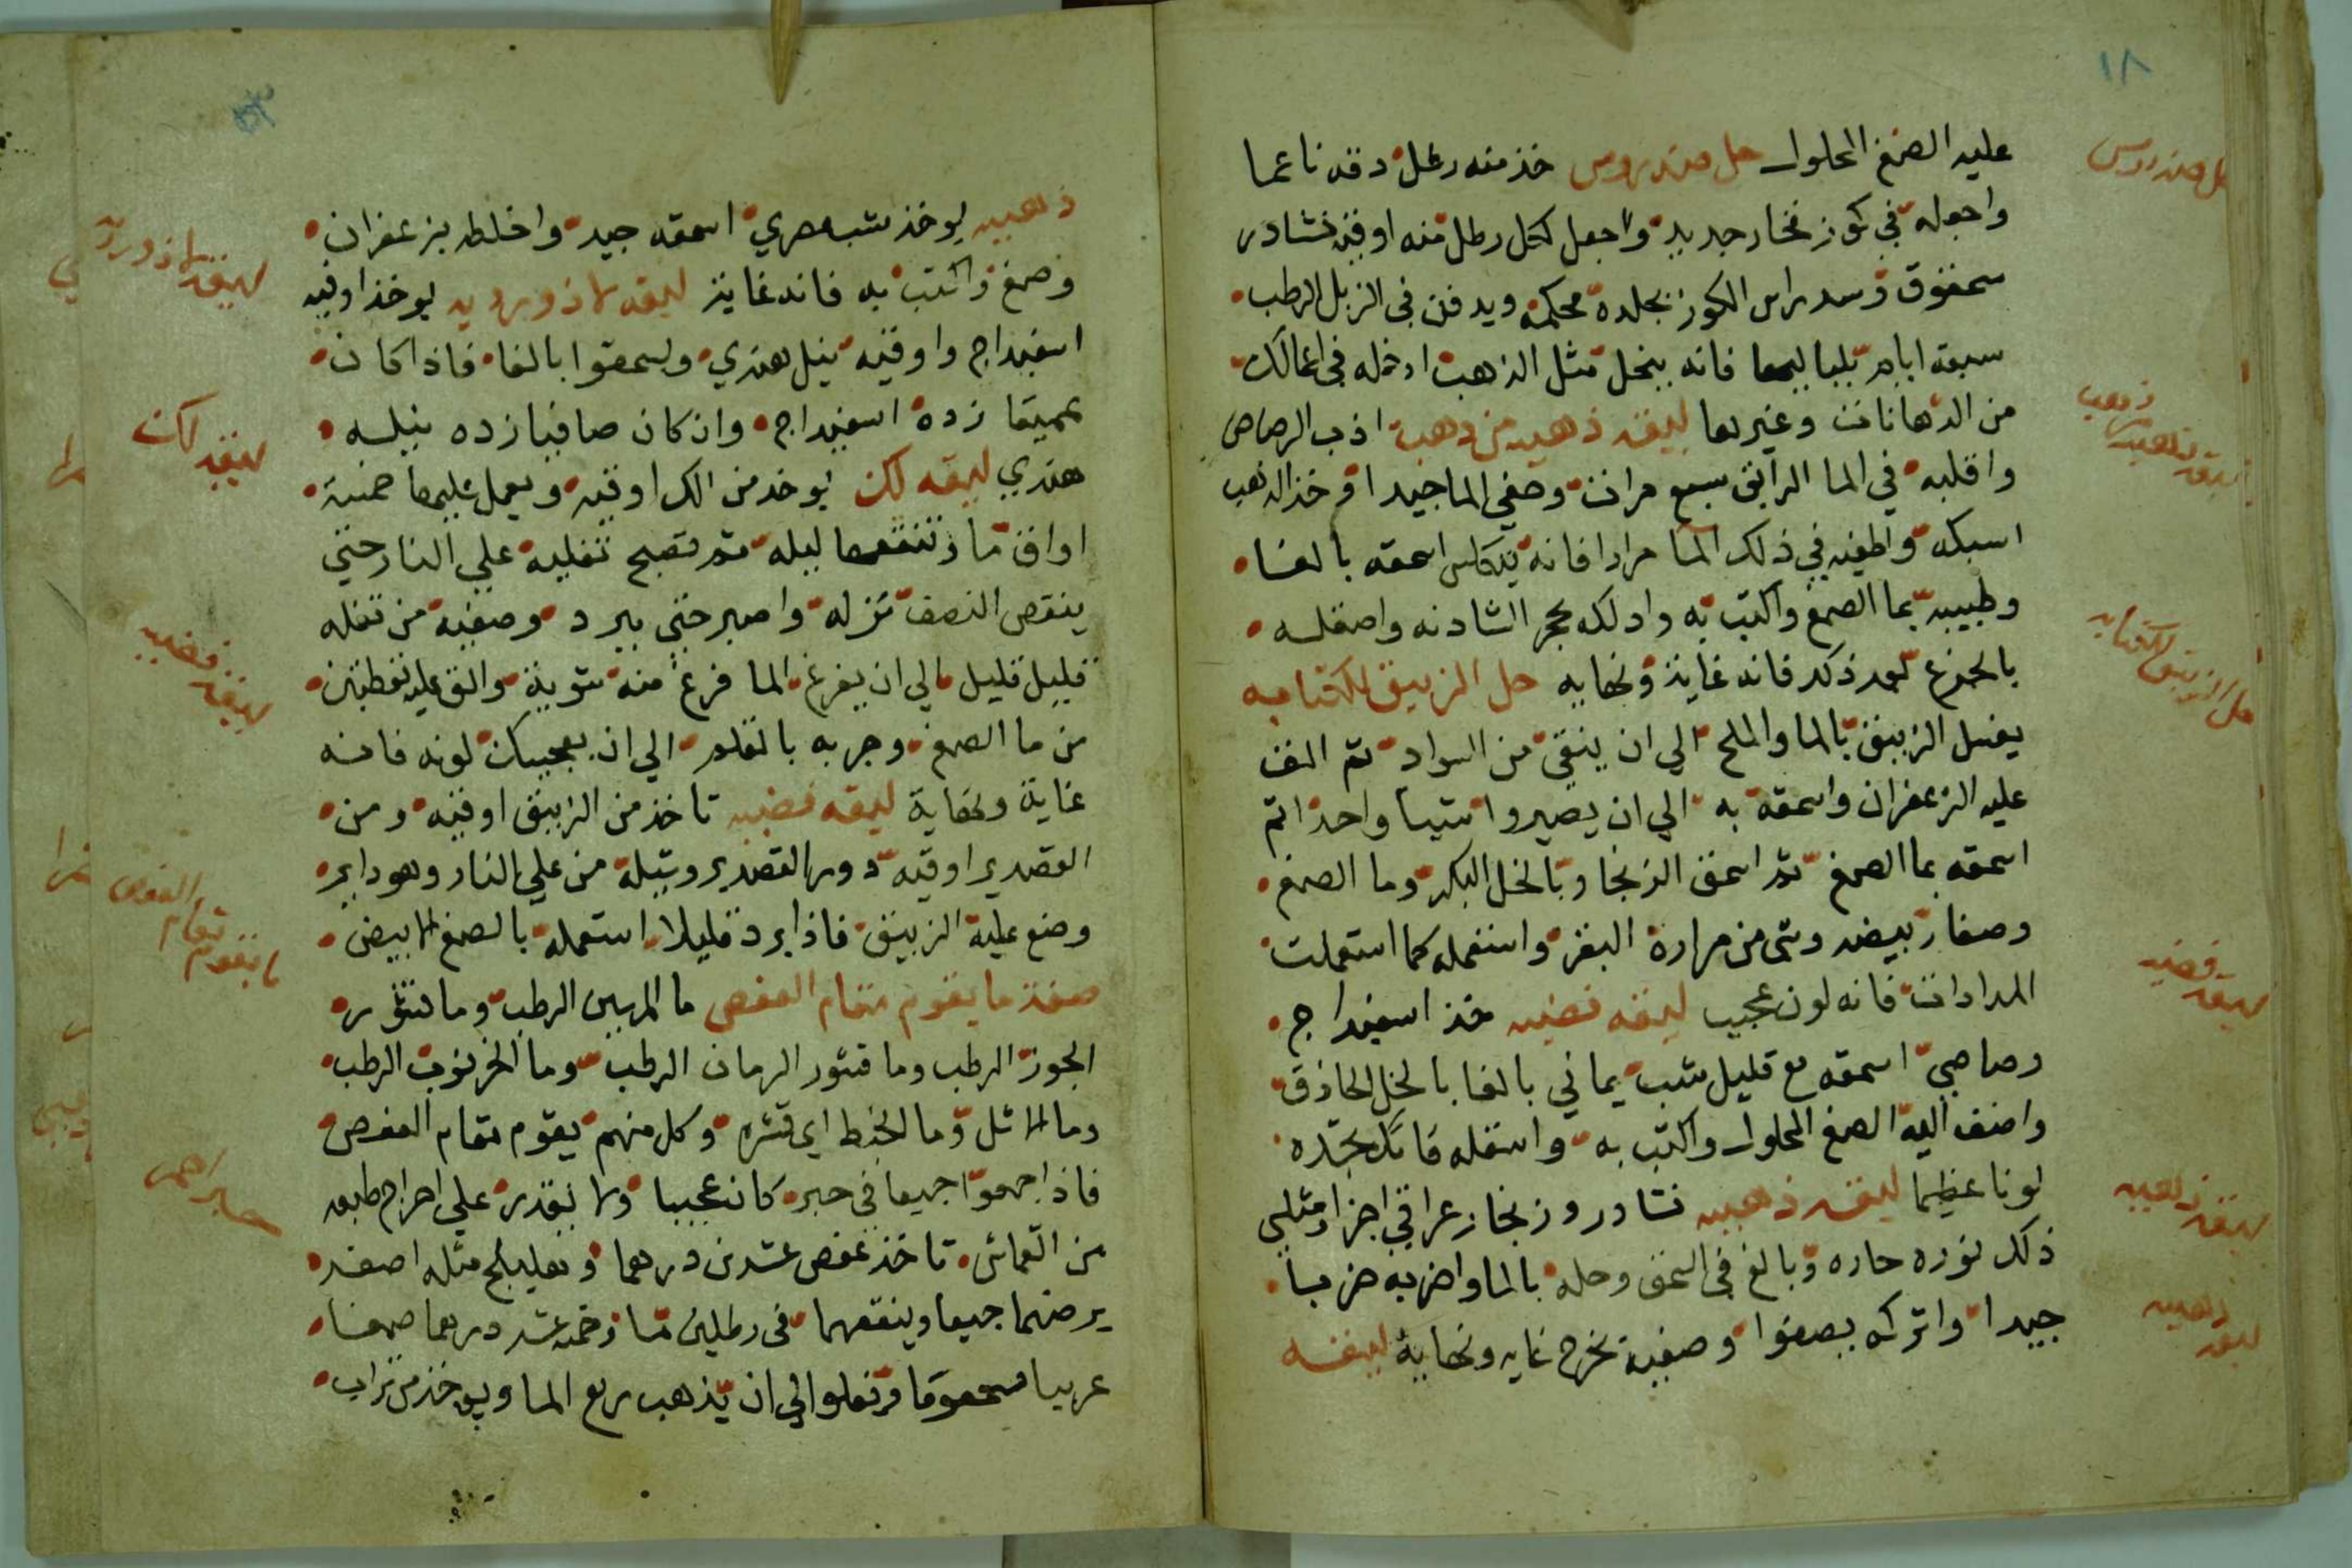 ١٨
عليه الصمغ المحلول حل صندروس خذ منه رطل دقه ناعما
واجعله في كوز فخار جديد واجعل لكل رطل منه اوقيه نشادر
مسحوق وسد راس الكوز بجلدة محكمة ويدفن في الزبل الرطب
سبعة ايام بلياليها فانه ينحل مثل الذهب ادخله في اعمالك
من الدهانات وغيرها ليقه ذهبيه من ذهب اذب الرصاص
واقلبه في الما الرايق سبع مرات وصفي الما جيدا وخذ الذهب
اسبكه واطفيه في ذلك الما مرارا فانه يتكلس اسحقه بالغا
وطيبه بما الصمغ واكتب به وادلكه بحجر الشادنه واصقله
بالجزع بعد ذلك فانه غاية ونهايه حل الزيبق للكتابه
يغسل الزيبق بالما والملح الي ان ينقي من السواد ثم الق
عليه الزعفران واسحقه به الي ان يصيروا شيا واحدا ثم
اسحقه بما الصمغ ثم اسحق الزنجار بالخل البكر وما الصمغ
وصفار بيضه وشي من مرارة البقر واستعمله كما استعملت
المدادات فانه لون عجيب ليقه فضيه خذ اسفيداج
رصاصي اسحقه مع قليل شب يماني بالغا بالخل الحاذق
واضف اليه الصمغ المحلول واكتب به واصقله فانك تجده
لونا عظيما ليقه ذهبيه نشادر وزنجار عراقي اجزا ومثلي
ذلك نوره حاره وبالغ في السحق وحله بالما واضربه ضربا
جيدا واتركه يصفوا وصفيه يخرج غايه ونهاية ليقه
حل صندروس
ليقه ذهبيه من ذهب
حل الزيبق للكتابه
ليقه فضيه
ليقه ذهبيه
ليقه ذهبيه
ذهبيه يوخذ شب مصري اسحقه جيد واخلطه بزعفران
وصمغ واكتب به فانه غاية ليقه لاذورديه يوخذ اوقيه
اسفيداج واوقيه نيل هندي ويسحقوا بالغا فاذا كان
عميقا زده اسفيداج وان كان صافيا زده نيله
هندي ليقه لك يوخذ من الك اوقيه ويعمل عليها خمسة
اواق ما وتنقعها ليله ثم تصبح تغليه علي النار حتي
ينقص النصف تنزله واصبر حتي يبرد وصفيه من تفله
قليل قليل الي ان يفرغ الما فرغ منه شوية والق عليه نقطتين
من ما الصمغ وجربه بالقلم الي ان يعجبك لونه فانه
غاية ونهاية ليقه فضيه تاخذ من الزيبق اوقيه ومن
القصدير اوقيه دور القصدير وشيله من علي النار وهو داير
وضع عليه الزيبق فاذا برد قليلا استعمله بالصمغ الابيض
صفة ما يقوم مقام العفص ما المرسين الرطب وما قشر
الجوز الرطب وما قشور الرمان الرطب وما الخرنوب الرطب
وما الاثل وما الخط اي قشره وكل منهم يقوم مقام العفص
فاذا جمعوا جميعا في حبر كان عجيبا ولا يقدر علي اخراج طبعه
من القماش تاخذ عفص عشرين درهما وهليلج مثله اصفر
يرضهما جميعا وينقعهما في رطلين ما وخمسه عشر درهما صمغا
عربيا مسحوقا وتغلوا الي ان يذهب ربع الما ويوخذ من تراب
ليقه لاذورديه
ليقه لك
ليقه فضيه
ما يقوم مقام العفص